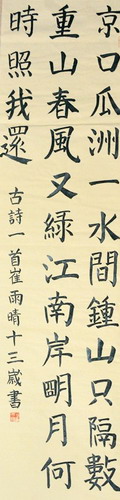 京口瓜洲一水間鍾山只隔數
重山春風又綠江南岸明月何
時照我還
古詩一首崔雨晴十三歲書